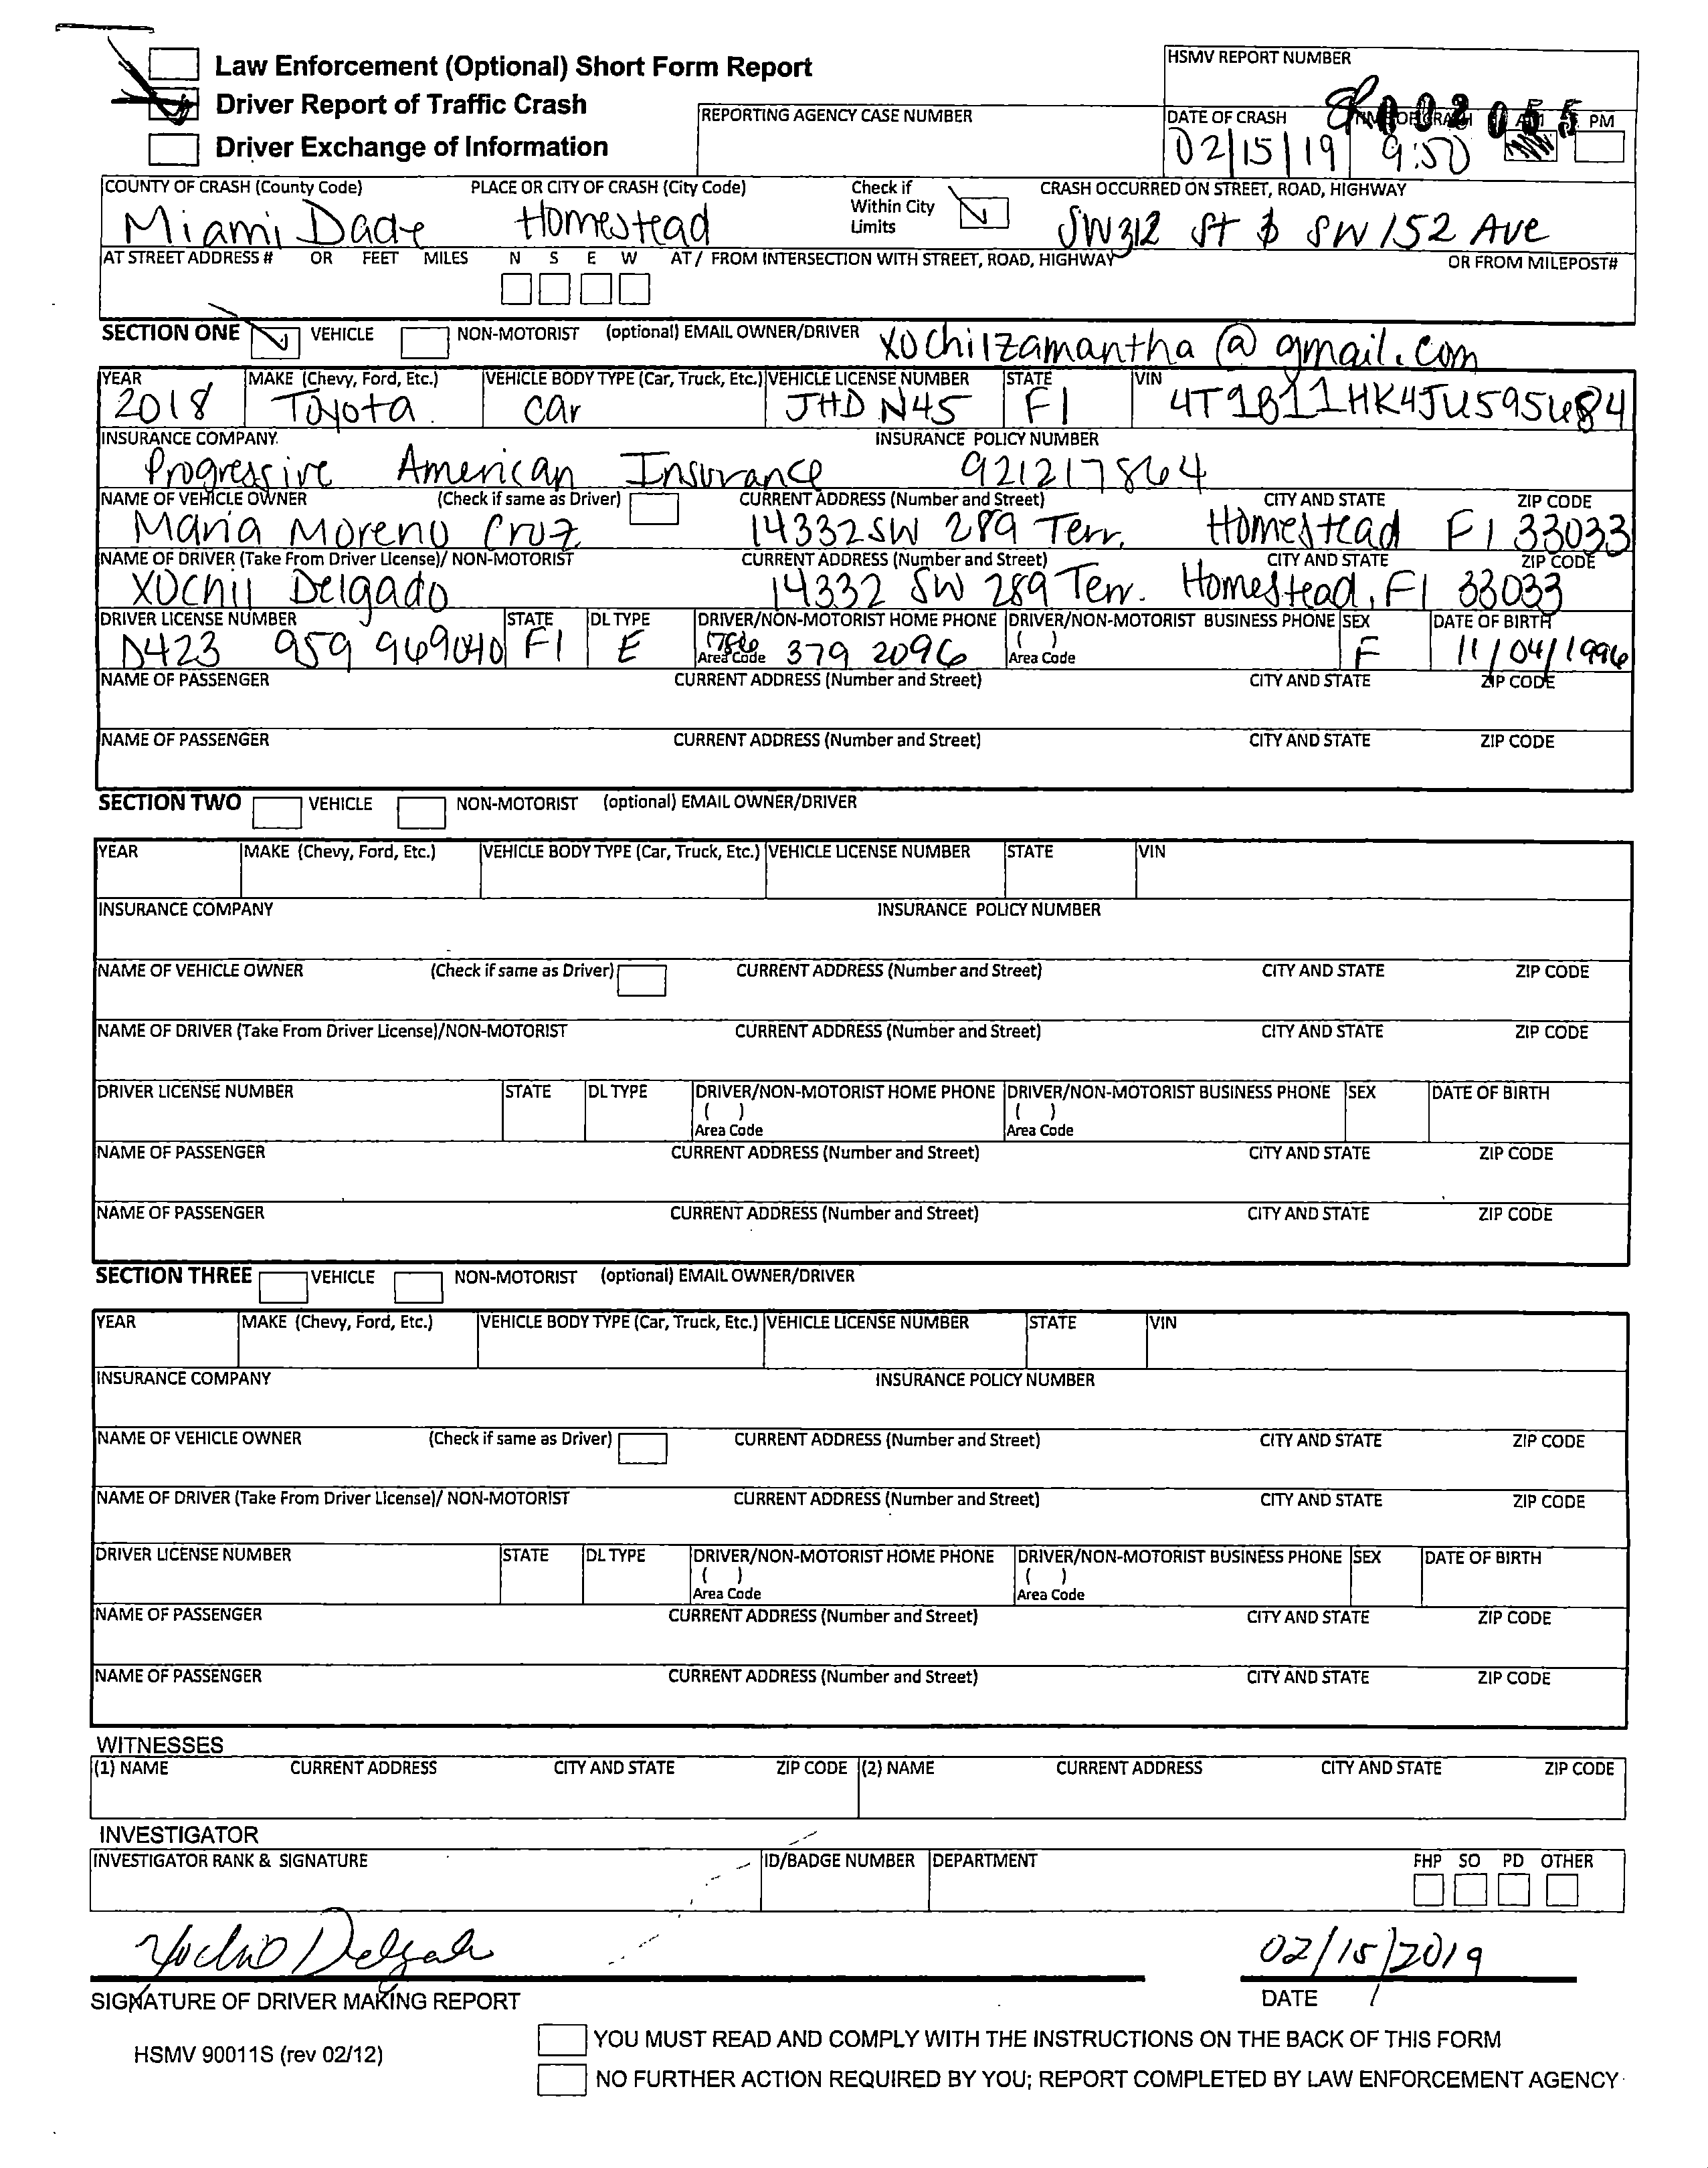 Law Enforcement (Optional) Short Form Report
Driver Report of Traffic Crash
Driver Exchange of Information
HSMV REPORT NUMBER
REPORTING AGENCY CASE NUMBER
DATE OF CRASH TIME OF CRASH AM PM
02/15/19 9:50
COUNTY OF CRASH (County Code) PLACE OR CITY OF CRASH (City Code) Check if Within City Limits CRASH OCCURRED ON STREET, ROAD, HIGHWAY
Miami Dade Homestead SW 312 St & SW 152 Ave
AT STREET ADDRESS # OR FEET MILES N S E W AT / FROM INTERSECTION WITH STREET, ROAD, HIGHWAY OR FROM MILEPOST#
SECTION ONE VEHICLE NON-MOTORIST (optional) EMAIL OWNER/DRIVER xochilzamantha@gmail.com
YEAR MAKE (Chevy, Ford, Etc.) VEHICLE BODY TYPE (Car, Truck, Etc.) VEHICLE LICENSE NUMBER STATE VIN
2018 Toyota car JHD N45 Fl 4T1B11HK4JU595684
INSURANCE COMPANY. INSURANCE POLICY NUMBER
Progressive American Insurance 921217864
NAME OF VEHICLE OWNER (Check if same as Driver) CURRENT ADDRESS (Number and Street) CITY AND STATE ZIP CODE
Maria Moreno Cruz 14332 SW 289 Terr. Homestead Fl 33033
NAME OF DRIVER (Take From Driver License)/ NON-MOTORIST CURRENT ADDRESS (Number and Street) CITY AND STATE ZIP CODE
Xochil Delgado 14332 SW 289 Terr. Homestead, Fl 33033
DRIVER LICENSE NUMBER STATE DL TYPE DRIVER/NON-MOTORIST HOME PHONE DRIVER/NON-MOTORIST BUSINESS PHONE SEX DATE OF BIRTH
D423 959 969040 Fl E (786 379 2096 ( ) F 11/04/1996
Area Code Area Code
NAME OF PASSENGER CURRENT ADDRESS (Number and Street) CITY AND STATE ZIP CODE
NAME OF PASSENGER CURRENT ADDRESS (Number and Street) CITY AND STATE ZIP CODE
SECTION TWO VEHICLE NON-MOTORIST (optional) EMAIL OWNER/DRIVER
YEAR MAKE (Chevy, Ford, Etc.) VEHICLE BODY TYPE (Car, Truck, Etc.) VEHICLE LICENSE NUMBER STATE VIN
INSURANCE COMPANY INSURANCE POLICY NUMBER
NAME OF VEHICLE OWNER (Check if same as Driver) CURRENT ADDRESS (Number and Street) CITY AND STATE ZIP CODE
NAME OF DRIVER (Take From Driver License)/NON-MOTORIST CURRENT ADDRESS (Number and Street) CITY AND STATE ZIP CODE
DRIVER LICENSE NUMBER STATE DL TYPE DRIVER/NON-MOTORIST HOME PHONE DRIVER/NON-MOTORIST BUSINESS PHONE SEX DATE OF BIRTH
( ) ( )
Area Code Area Code
NAME OF PASSENGER CURRENT ADDRESS (Number and Street) CITY AND STATE ZIP CODE
NAME OF PASSENGER CURRENT ADDRESS (Number and Street) CITY AND STATE ZIP CODE
SECTION THREE VEHICLE NON-MOTORIST (optional) EMAIL OWNER/DRIVER
YEAR MAKE (Chevy, Ford, Etc.) VEHICLE BODY TYPE (Car, Truck, Etc.) VEHICLE LICENSE NUMBER STATE VIN
INSURANCE COMPANY INSURANCE POLICY NUMBER
NAME OF VEHICLE OWNER (Check if same as Driver) CURRENT ADDRESS (Number and Street) CITY AND STATE ZIP CODE
NAME OF DRIVER (Take From Driver License)/ NON-MOTORIST CURRENT ADDRESS (Number and Street) CITY AND STATE ZIP CODE
DRIVER LICENSE NUMBER STATE DL TYPE DRIVER/NON-MOTORIST HOME PHONE DRIVER/NON-MOTORIST BUSINESS PHONE SEX DATE OF BIRTH
( ) ( )
Area Code Area Code
NAME OF PASSENGER CURRENT ADDRESS (Number and Street) CITY AND STATE ZIP CODE
NAME OF PASSENGER CURRENT ADDRESS (Number and Street) CITY AND STATE ZIP CODE
WITNESSES
(1) NAME CURRENT ADDRESS CITY AND STATE ZIP CODE (2) NAME CURRENT ADDRESS CITY AND STATE ZIP CODE
INVESTIGATOR
INVESTIGATOR RANK & SIGNATURE ID/BADGE NUMBER DEPARTMENT FHP SO PD OTHER
Xochil Delgado 02/15/2019
SIGNATURE OF DRIVER MAKING REPORT DATE
HSMV 90011S (rev 02/12)
YOU MUST READ AND COMPLY WITH THE INSTRUCTIONS ON THE BACK OF THIS FORM
NO FURTHER ACTION REQUIRED BY YOU; REPORT COMPLETED BY LAW ENFORCEMENT AGENCY